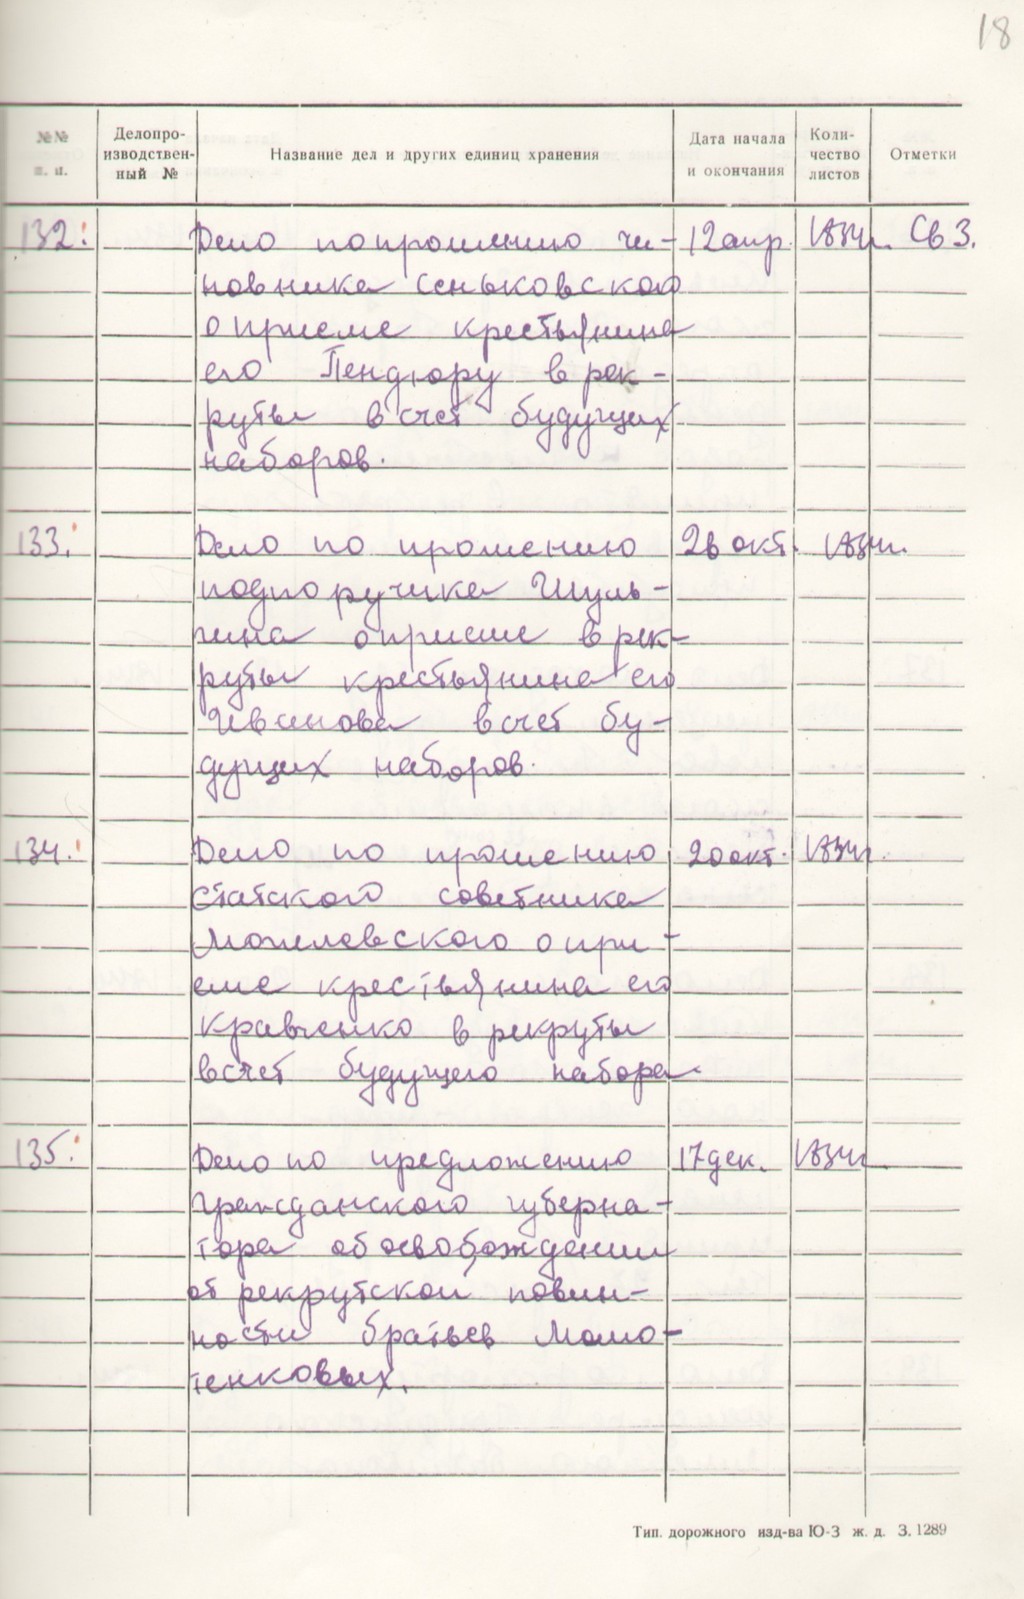 18
№№ п. п.
Делопро-
изводствен-
ный №
Название дел и других единиц хранения
Дата начала
и окончания
Коли-
чество
листов
Отметки
132. Дело по прошению чи- 12 апр. 1834г. Св 3.
новника Сеньковского
о приеме крестьянина
его Пендюру в рек-
руты в счет будущих
наборов.
133. Дело по прошению 26 окт. 1834г.
подпоручика Шуль-
гина о приеме в рек-
руты крестьянина его
Иванова в счет бу-
дущих наборов.
134. Дело по прошению 20 окт. 1834г.
статского советника
Могилевского о при-
еме крестьянина его
Кравченко в рекруты
в счет будущего набора
135. Дело по предложению 17 дек. 1834г.
гражданского губерна-
тора об освобождении
от рекрутской повин-
ности братьев Момо-
тенковых.
Тип. дорожного изд-ва Ю-З ж. д. З. 1289